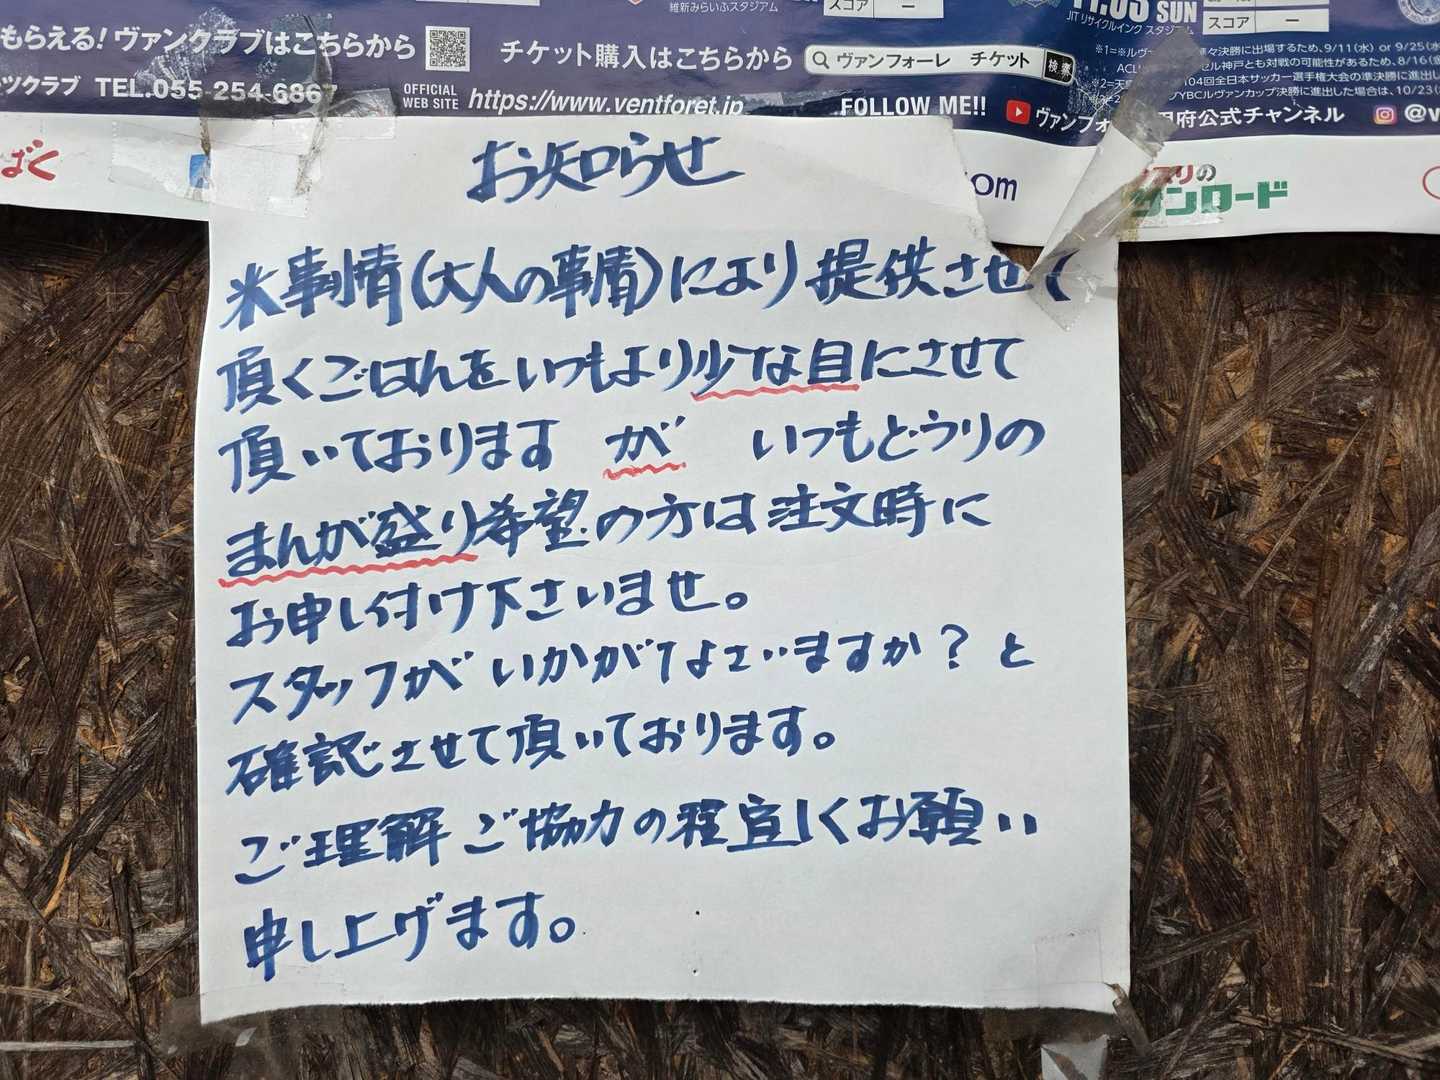 維新みらいふスタジアム
スコア
ー
11.03 SUN
JIT リサイクルインク スタジアム
スコア
ー
もらえる! ヴァンクラブはこちらから
チケット購入はこちらから
ヴァンフォーレ チケット
検索
ツクラブ TEL.055-254-6867
OFFICIAL
WEB SITE
https://www.ventforet.jp
FOLLOW ME!!
ヴァンフォ
甲府公式チャンネル
@v
ばく
om
サンロード
お知らせ
米事情(大人の事情)により提供させ
頂くごはんをいつもより少な目にさせて
頂いております が いつもどうりの
まんが盛り希望の方は注文時に
お申し付け下さいませ。
スタッフが いかがなさいますか? と
確認させて頂いております。
ご理解 ご協力の程宜しくお願い
申し上げます。